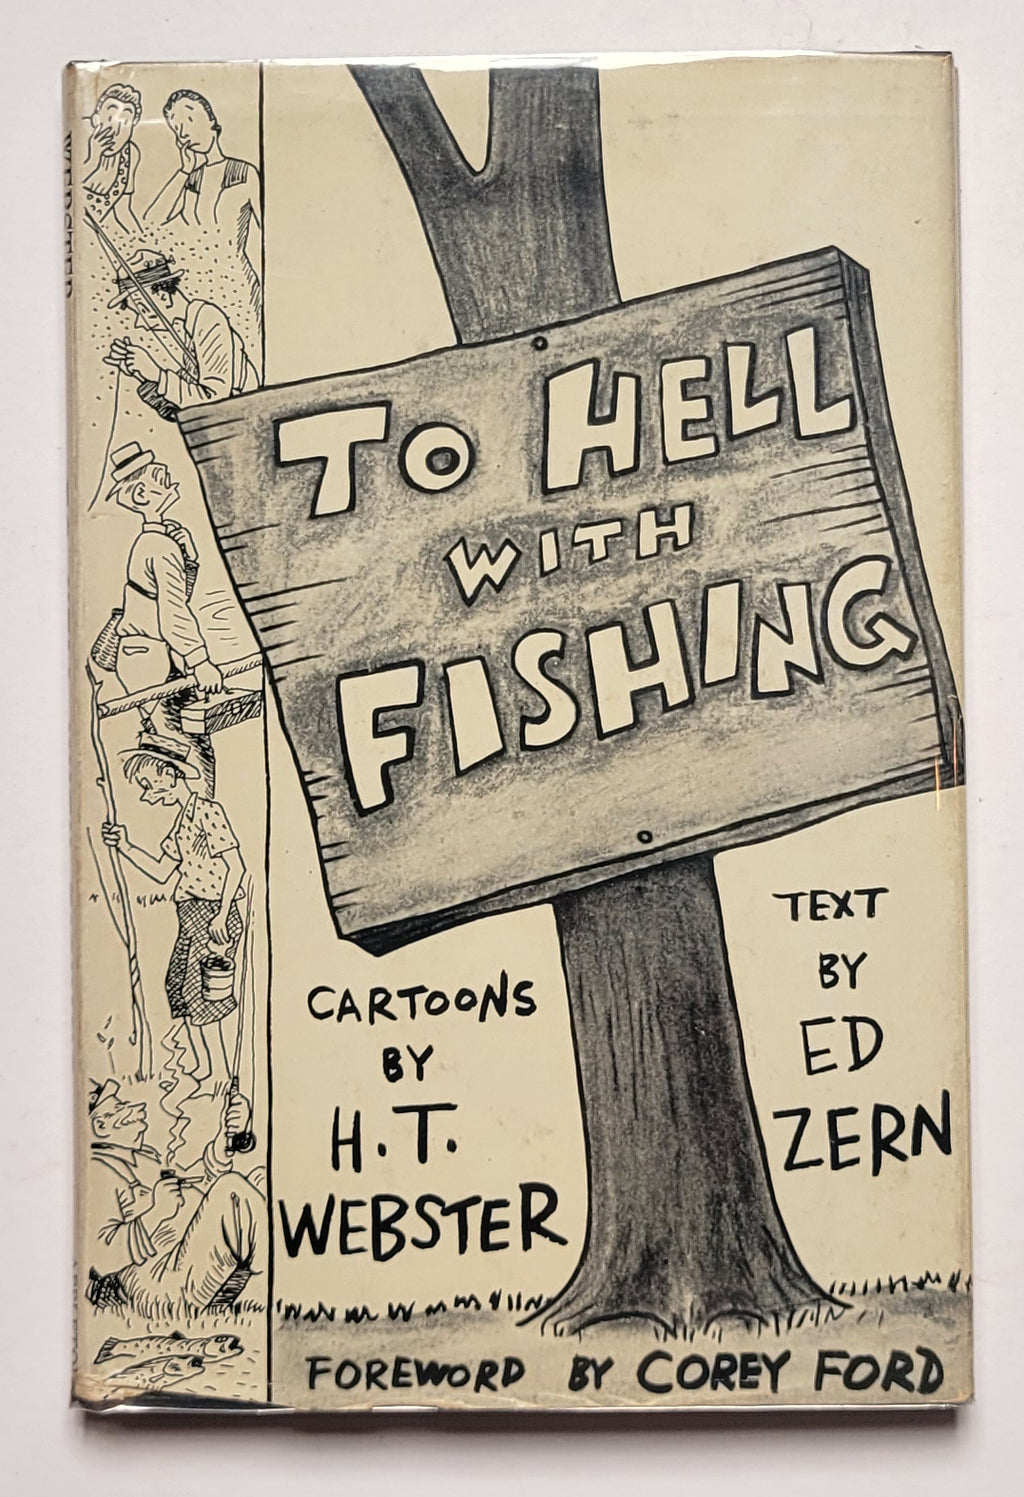 TO HELL
WITH
FISHING
CARTOONS
BY
H.T.
WEBSTER
TEXT
BY
ED
ZERN
FOREWORD BY COREY FORD
WEBSTER